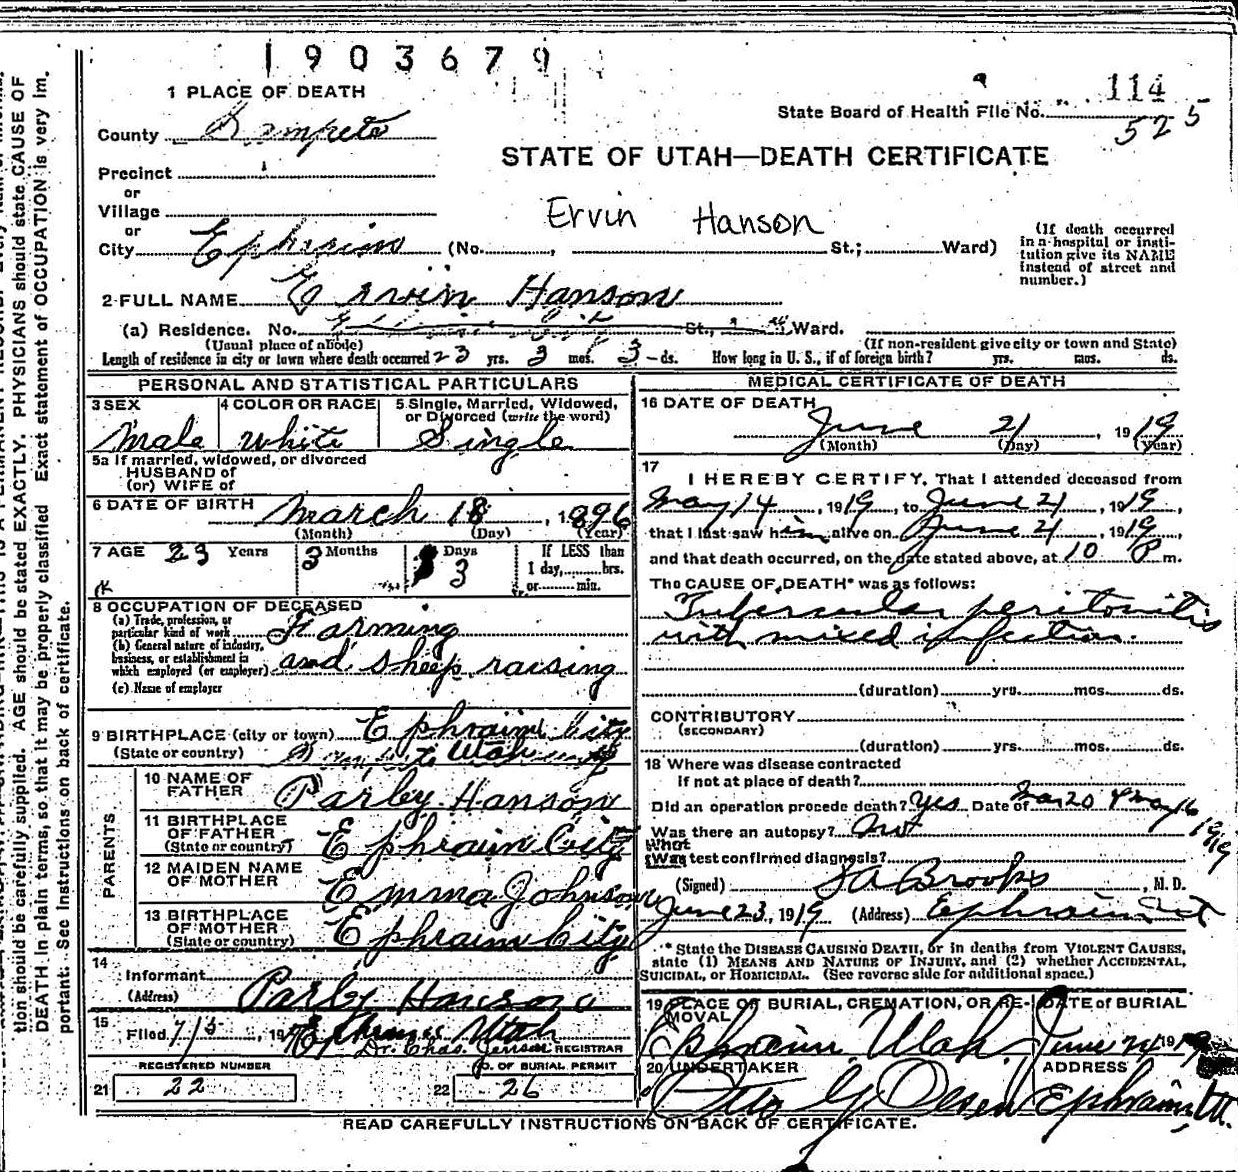 1903679
1 PLACE OF DEATH
114
State Board of Health File No.
525
County Sanpete
STATE OF UTAH—DEATH CERTIFICATE
Precinct
or
Village
Ervin Hanson
or
City Ephraim (No. , St.; Ward)
(If death occurred in a hospital or insti- tution give its NAME instead of street and number.)
2 FULL NAME Ervin Hanson
(a) Residence. No. St., Ward.
(Usual place of abode) (If non-resident give city or town and State)
Length of residence in city or town where death occurred 23 yrs. 3 mos. 3 ds. How long in U. S., if of foreign birth? yrs. mos. ds.
PERSONAL AND STATISTICAL PARTICULARS
3 SEX 4 COLOR OR RACE 5 Single, Married, Widowed,
or Divorced (write the word)
Male White Single
5a If married, widowed, or divorced
HUSBAND of
(or) WIFE of
6 DATE OF BIRTH March 18, 1896
(Month) (Day) (Year)
7 AGE 23 Years 3 Months 3 Days If LESS than
1 day, hrs.
or min.
8 OCCUPATION OF DECEASED
(a) Trade, profession, or
particular kind of work Farming
(b) General nature of industry,
business, or establishment in
which employed (or employer) and sheep raising
(c) Name of employer
9 BIRTHPLACE (city or town) Ephraim City
(State or country) Utah
PARENTS
10 NAME OF
FATHER Parley Hanson
11 BIRTHPLACE
OF FATHER
(State or country) Ephraim City
12 MAIDEN NAME
OF MOTHER Emma Johnson
13 BIRTHPLACE
OF MOTHER
(State or country) Ephraim City
14
Informant
(Address) Parley Hanson
15
Filed 7/5, 19 Ephraim Utah
Dr. Chas. Jenson REGISTRAR
REGISTERED NUMBER NO. OF BURIAL PERMIT
21 22 22 26
MEDICAL CERTIFICATE OF DEATH
16 DATE OF DEATH
June 21, 1919
(Month) (Day) (Year)
17
I HEREBY CERTIFY, That I attended deceased from
May 14, 1919, to June 21, 1919,
that I last saw him alive on June 21, 1919,
and that death occurred, on the date stated above, at 10 P m.
The CAUSE OF DEATH* was as follows:
Tubercular peritonitis
with mixed infection.
(duration) yrs. mos. ds.
CONTRIBUTORY
(SECONDARY)
(duration) yrs. mos. ds.
18 Where was disease contracted
If not at place of death?
Did an operation precede death? Yes Date of Mar 20 & May 16
1919
Was there an autopsy? No
What
(Was test confirmed diagnosis?
(Signed) S A Brooks, M. D.
June 23, 1919 (Address) Ephraim Ut
* State the DISEASE CAUSING DEATH, or in deaths from VIOLENT CAUSES,
state (1) MEANS AND NATURE OF INJURY, and (2) whether ACCIDENTAL,
SUICIDAL, or HOMICIDAL. (See reverse side for additional space.)
19 PLACE OF BURIAL, CREMATION, OR RE- DATE of BURIAL
MOVAL
Ephraim Utah June 24 1919
20 UNDERTAKER ADDRESS
Otto G Olesen Ephraim, Ut.
READ CAREFULLY INSTRUCTIONS ON BACK OF CERTIFICATE.
tion should be carefully supplied. AGE should be stated EXACTLY. PHYSICIANS should state CAUSE OF
DEATH in plain terms, so that it may be properly classified Exact statement of OCCUPATION is very im-
portant. See instructions on back of certificate.